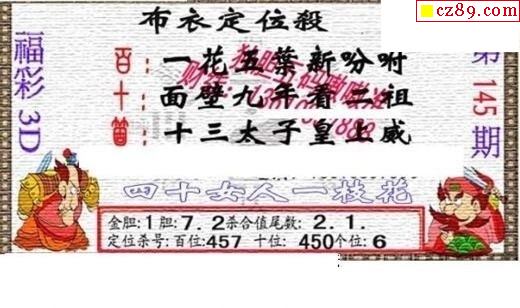 cz89.com
布衣定位殺
福彩3D
第145期
百：一花五葉新吩咐
十：面壁九年看二祖
箇：十三太子皇上威
四十女人一枝花
金胆:1胆:7.2杀合值尾数:2.1.
定位杀号:百位:457 十位:450个位:6